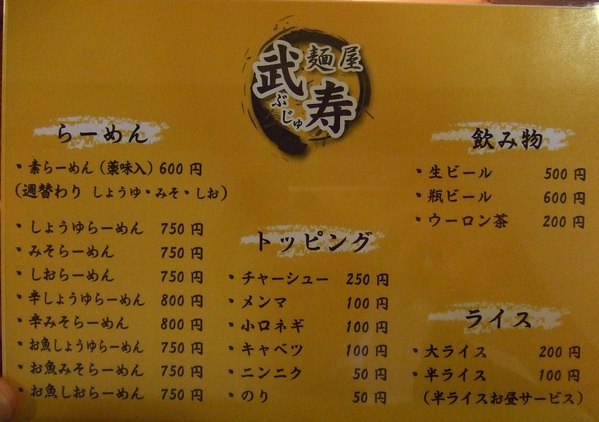 麺屋
武寿
ぶじゅ
らーめん
・素らーめん(薬味入)600円
(週替わり しょうゆ・みそ・しお)
・しょうゆらーめん 750円
・みそらーめん 750円
・しおらーめん 750円
・辛しょうゆらーめん 800円
・辛みそらーめん 800円
・お魚しょうゆらーめん 750円
・お魚みそらーめん 750円
・お魚しおらーめん 750円
トッピング
・チャーシュー 250円
・メンマ 100円
・小口ネギ 100円
・キャベツ 100円
・ニンニク 50円
・のり 50円
飲み物
・生ビール 500円
・瓶ビール 600円
・ウーロン茶 200円
ライス
・大ライス 200円
・半ライス 100円
(半ライスお昼サービス)